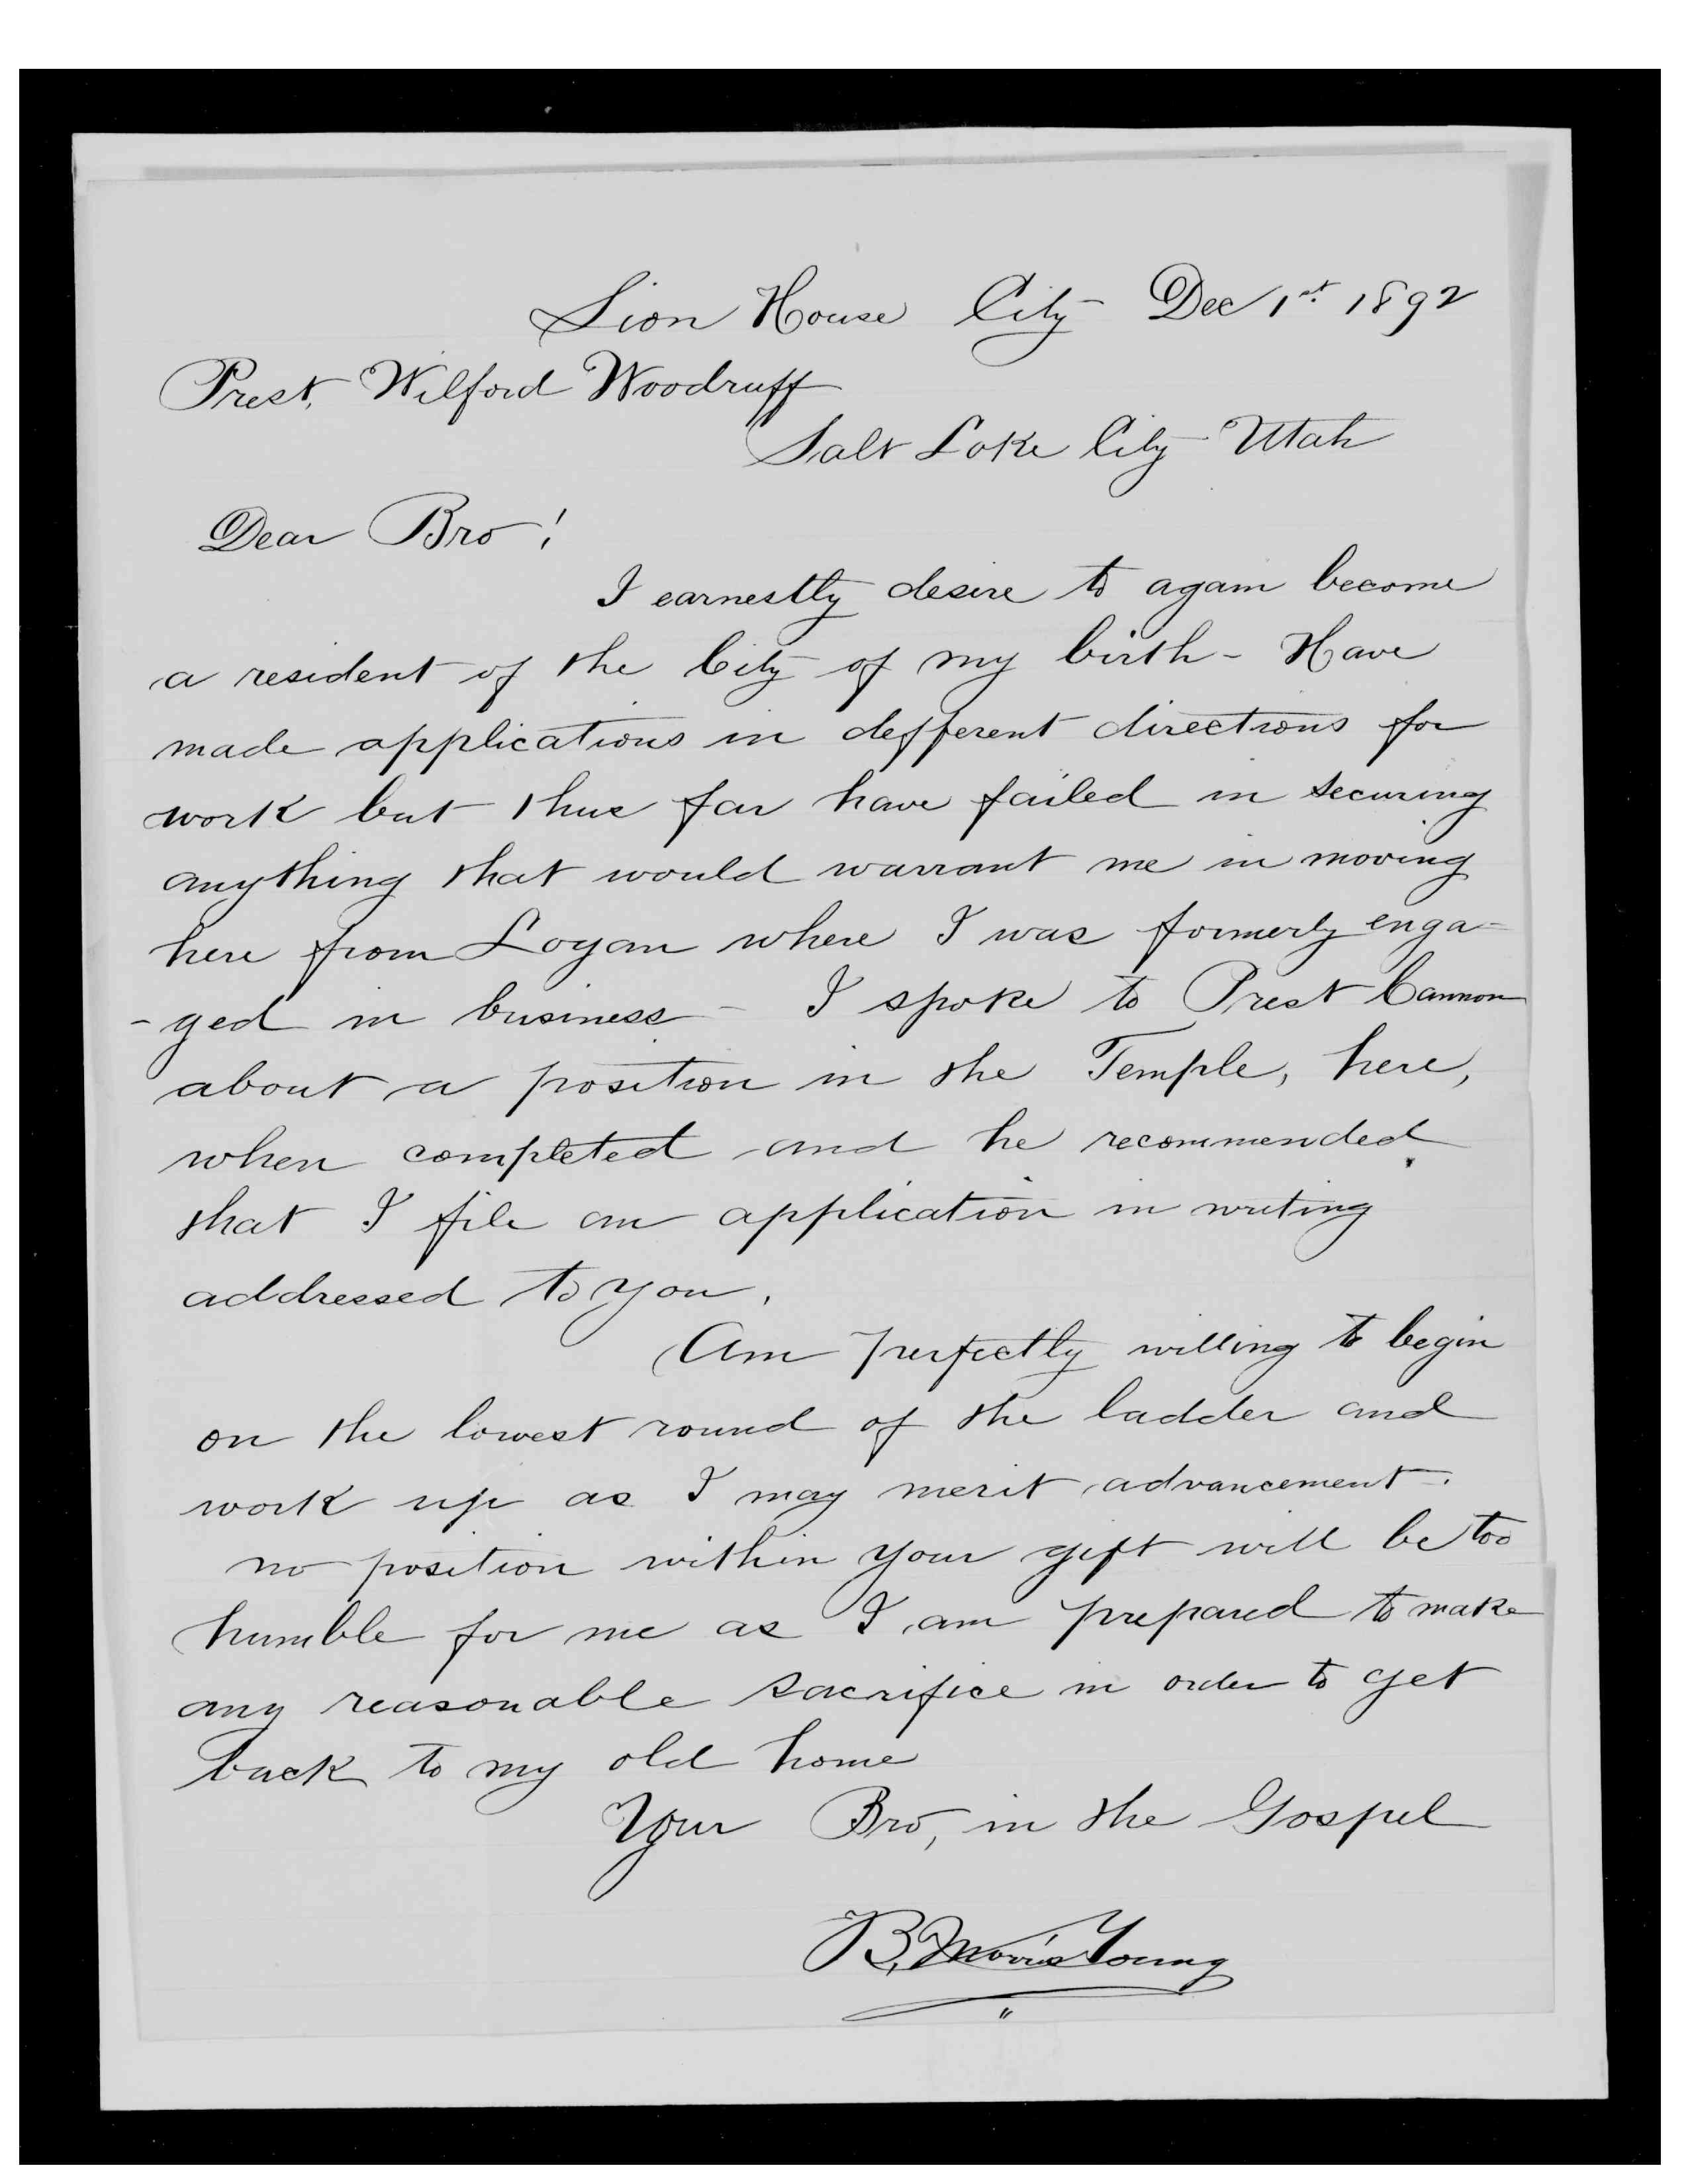 Lion House City Dec 1st 1892
Prest. Wilford Woodruff
Salt Lake City Utah
Dear Bro!
I earnestly desire to again become
a resident of the City of my birth - Have
made applications in defferent directions for
work but thus far have failed in securing
anything that would warrant me in moving
here from Logan where I was formerly enga-
-ged in business - I spoke to Prest Cannon
about a position in the Temple, here,
when completed and he recommended
that I file an application in writing
addressed to you.
Am perfectly willing to begin
on the lowest round of the ladder and
work up as I may merit advancement.
no position within your gift will be too
humble for me as I am prepared to make
any reasonable sacrifice in order to get
back to my old home
Your Bro, in the Gospel
B. Morris Young